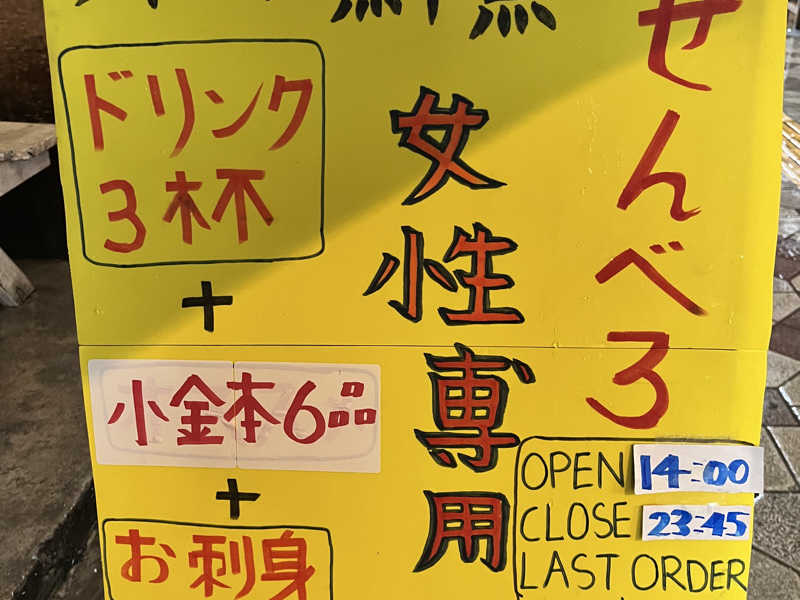 せんべろ
女性専用
ドリンク
3杯
+
小鉢6品
+
お刺身
OPEN 14:00
CLOSE 23:45
LAST ORDER